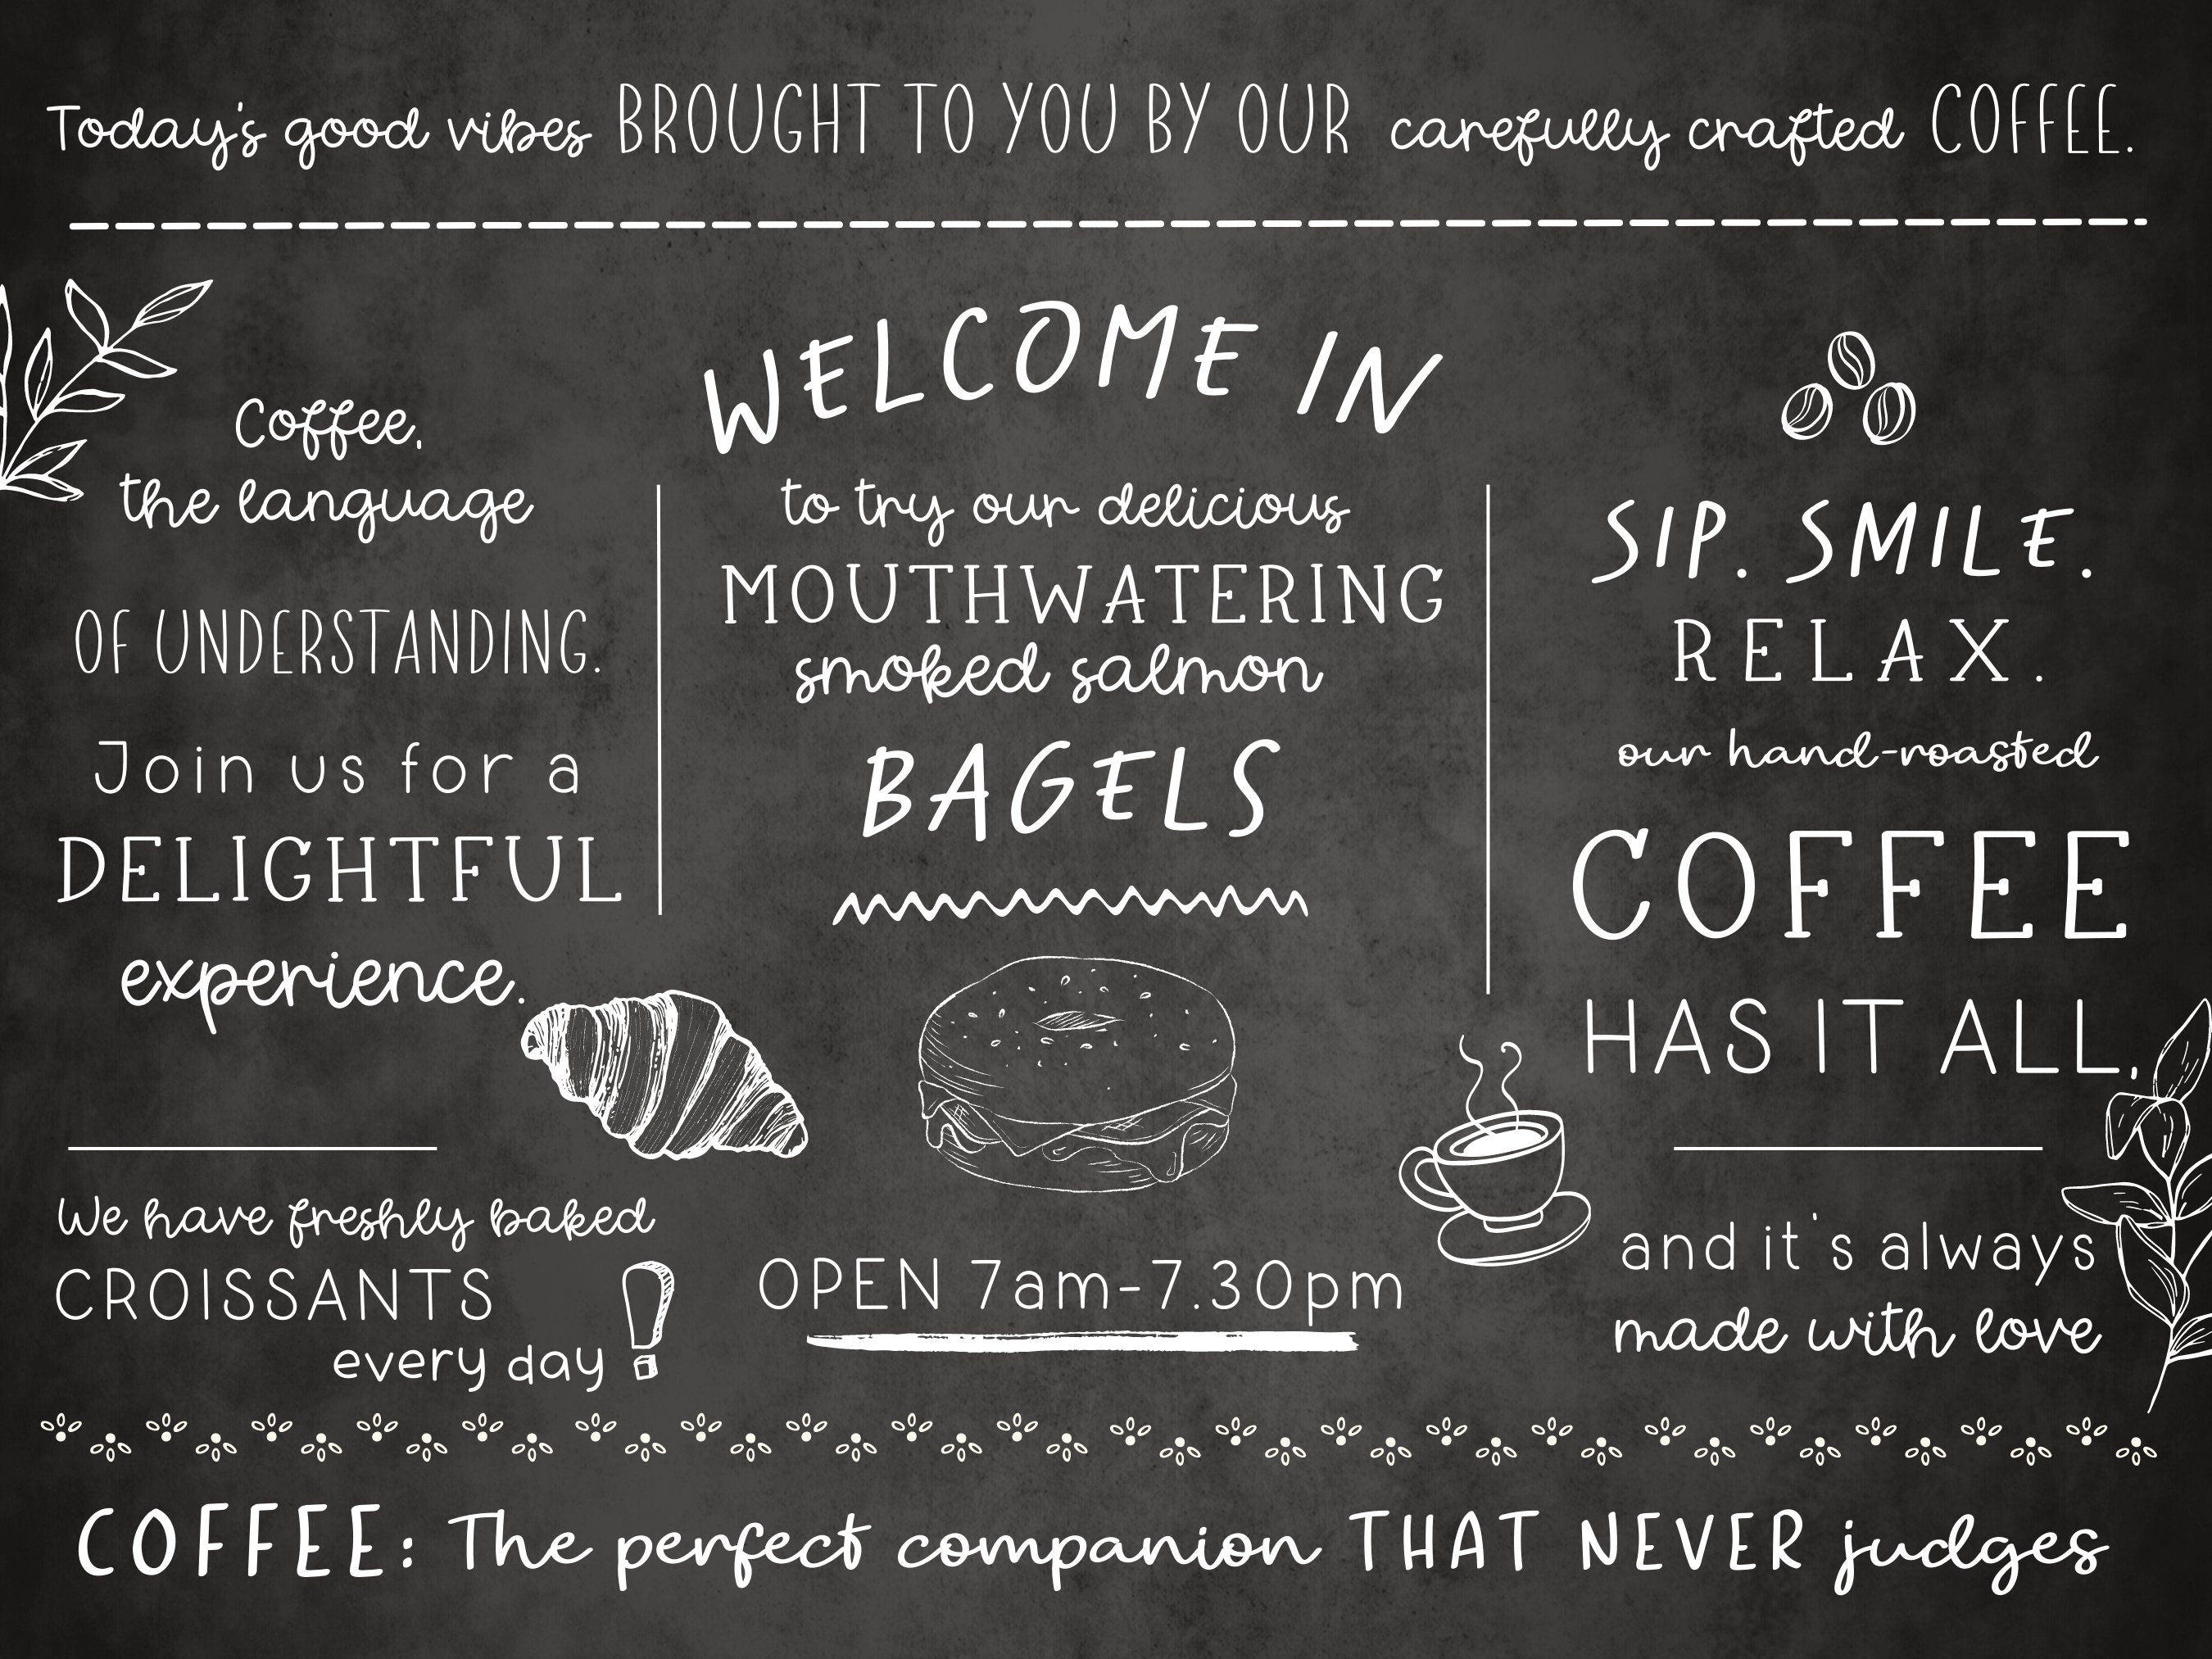 Today's good vibes BROUGHT TO YOU BY OUR carefully crafted COFFEE.
Coffee,
the language
OF UNDERSTANDING.
Join us for a
DELIGHTFUL
experience.
We have freshly baked
CROISSANTS
every day !
WELCOME IN
to try our delicious
MOUTHWATERING
smoked salmon
BAGELS
OPEN 7am-7.30pm
SIP. SMILE.
RELAX.
our hand-roasted
COFFEE
HAS IT ALL,
and it's always
made with love
COFFEE: The perfect companion THAT NEVER judges